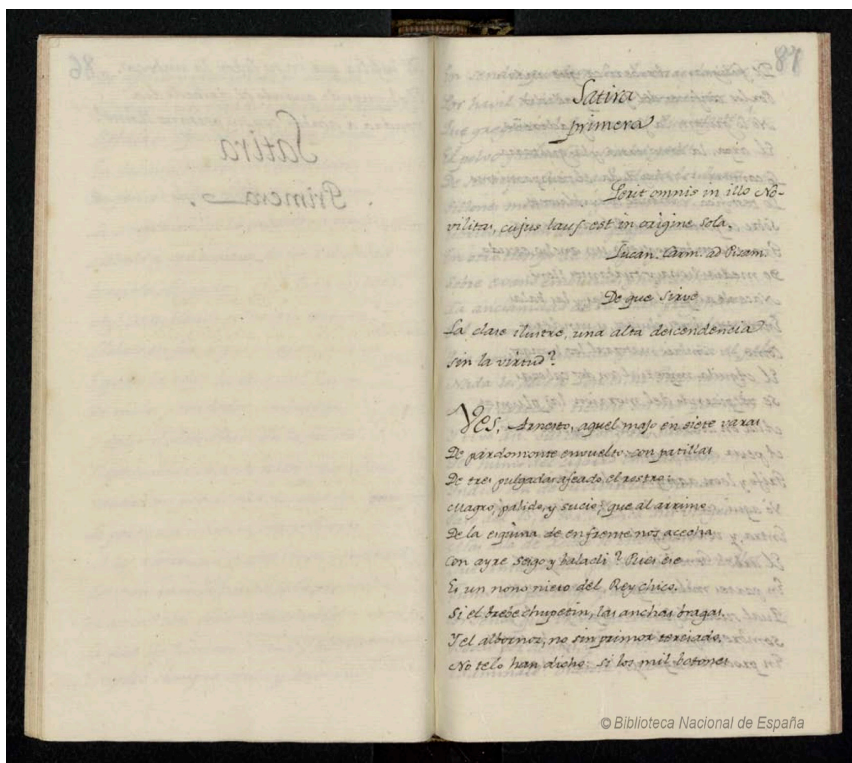 87
Satira
primera
Perit omnis in illo No-
vilitas, cujus laus est in origine sola.
Lucan. Carm. ad Pison.
De que sirve
La clase ilustre, una alta descendencia
sin la virtud?
Ves, Arnesto, aquel majo en siete varas
De pardomonte envuelto, con patillas
De tres pulgadas afeado el rostro,
Magro, palido, y sucio, que al arrimo
De la esquina de enfrente nos acecha
Con ayre sesgo y baladi? Pues ese
Es un nono nieto del Rey chico.
Si el brebe chupetin, las anchas bragas,
Y el albornoz, no sin primor terciado,
No te lo han dicho: si los mil botones
© Biblioteca Nacional de España